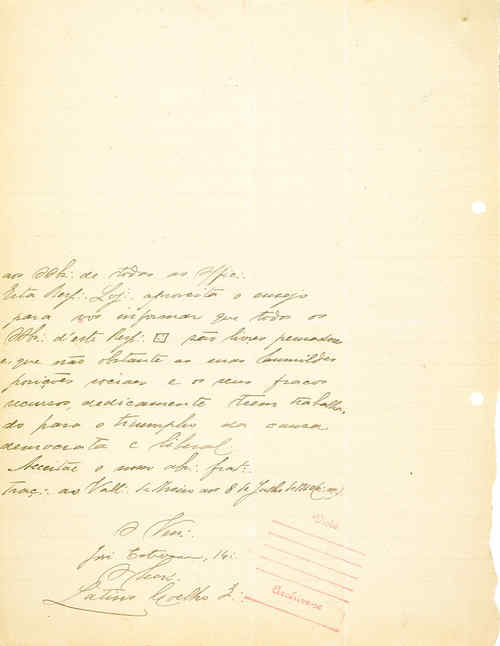 aos Obr∴ de todas as Offic∴
Esta Resp∴ Loj∴ aproveita o ensejo
para vos informar que todos os
Obr∴ d'este Resp∴ são livres pensadores
e que não obstante as suas humildes
posições sociaes e os seus fracos
recursos, dedicamente teem trabalha
do para o triumpho da causa
democrata e liberal.
Acceitae o nosso abr∴ frat∴
Traç∴ aos Vall∴ de aos 8 de de
O Ven∴
José Estevam, 14∴
O Secr∴
Latino Coelho 3∴
Visto
Archive-se